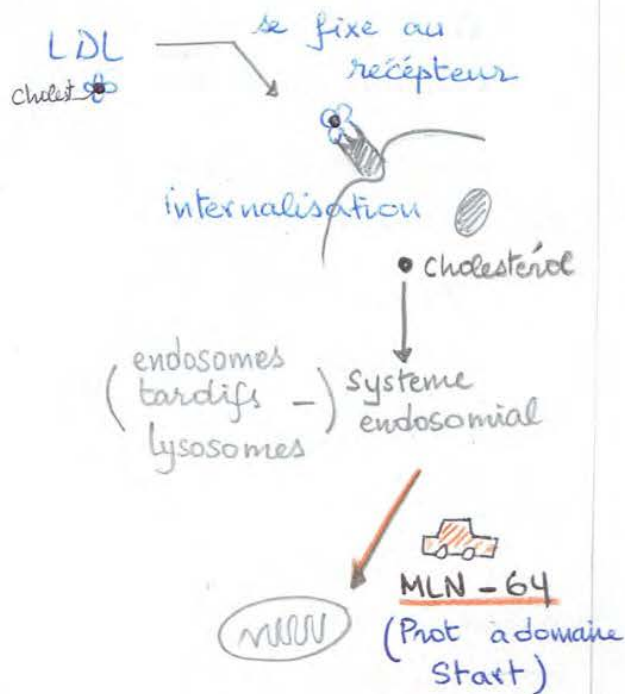 LDL
Cholest
se fixe au
récépteur
internalisation
cholestérol
(endosomes
tardifs -
lysosomes)
systeme
endosomial
MLN-64
(Prot à domaine
Start)